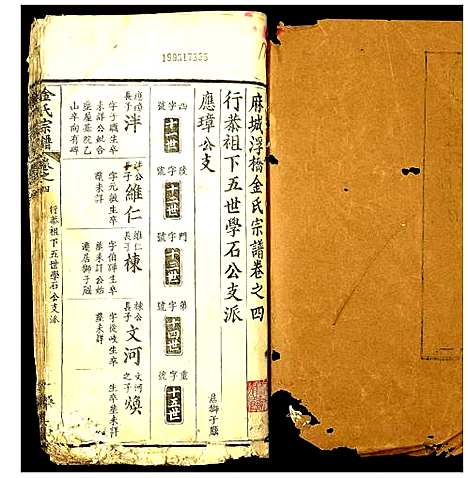 199317355
麻城浮橋金氏宗譜卷之四
行恭祖下五世學石公支派
應璋公支
居獅子巖
西字號 十一世
陵字號 十二世
門字號 十三世
弟字號 十四世
重字號 十五世
應璋長子 洋
字子職生卒
未詳公妣合
葬屋基院乙
山辛向有碑
洋公長子 維仁
字元敏生卒
葬未詳
維仁長子 棟
字伯舜生卒
葬未詳公始
遷居獅子巖
棟公長子 文河
字從岐生卒
葬未詳
文河之子 煥
生卒葬未詳
金氏宗譜
卷之四
行恭祖下五世學石公支派